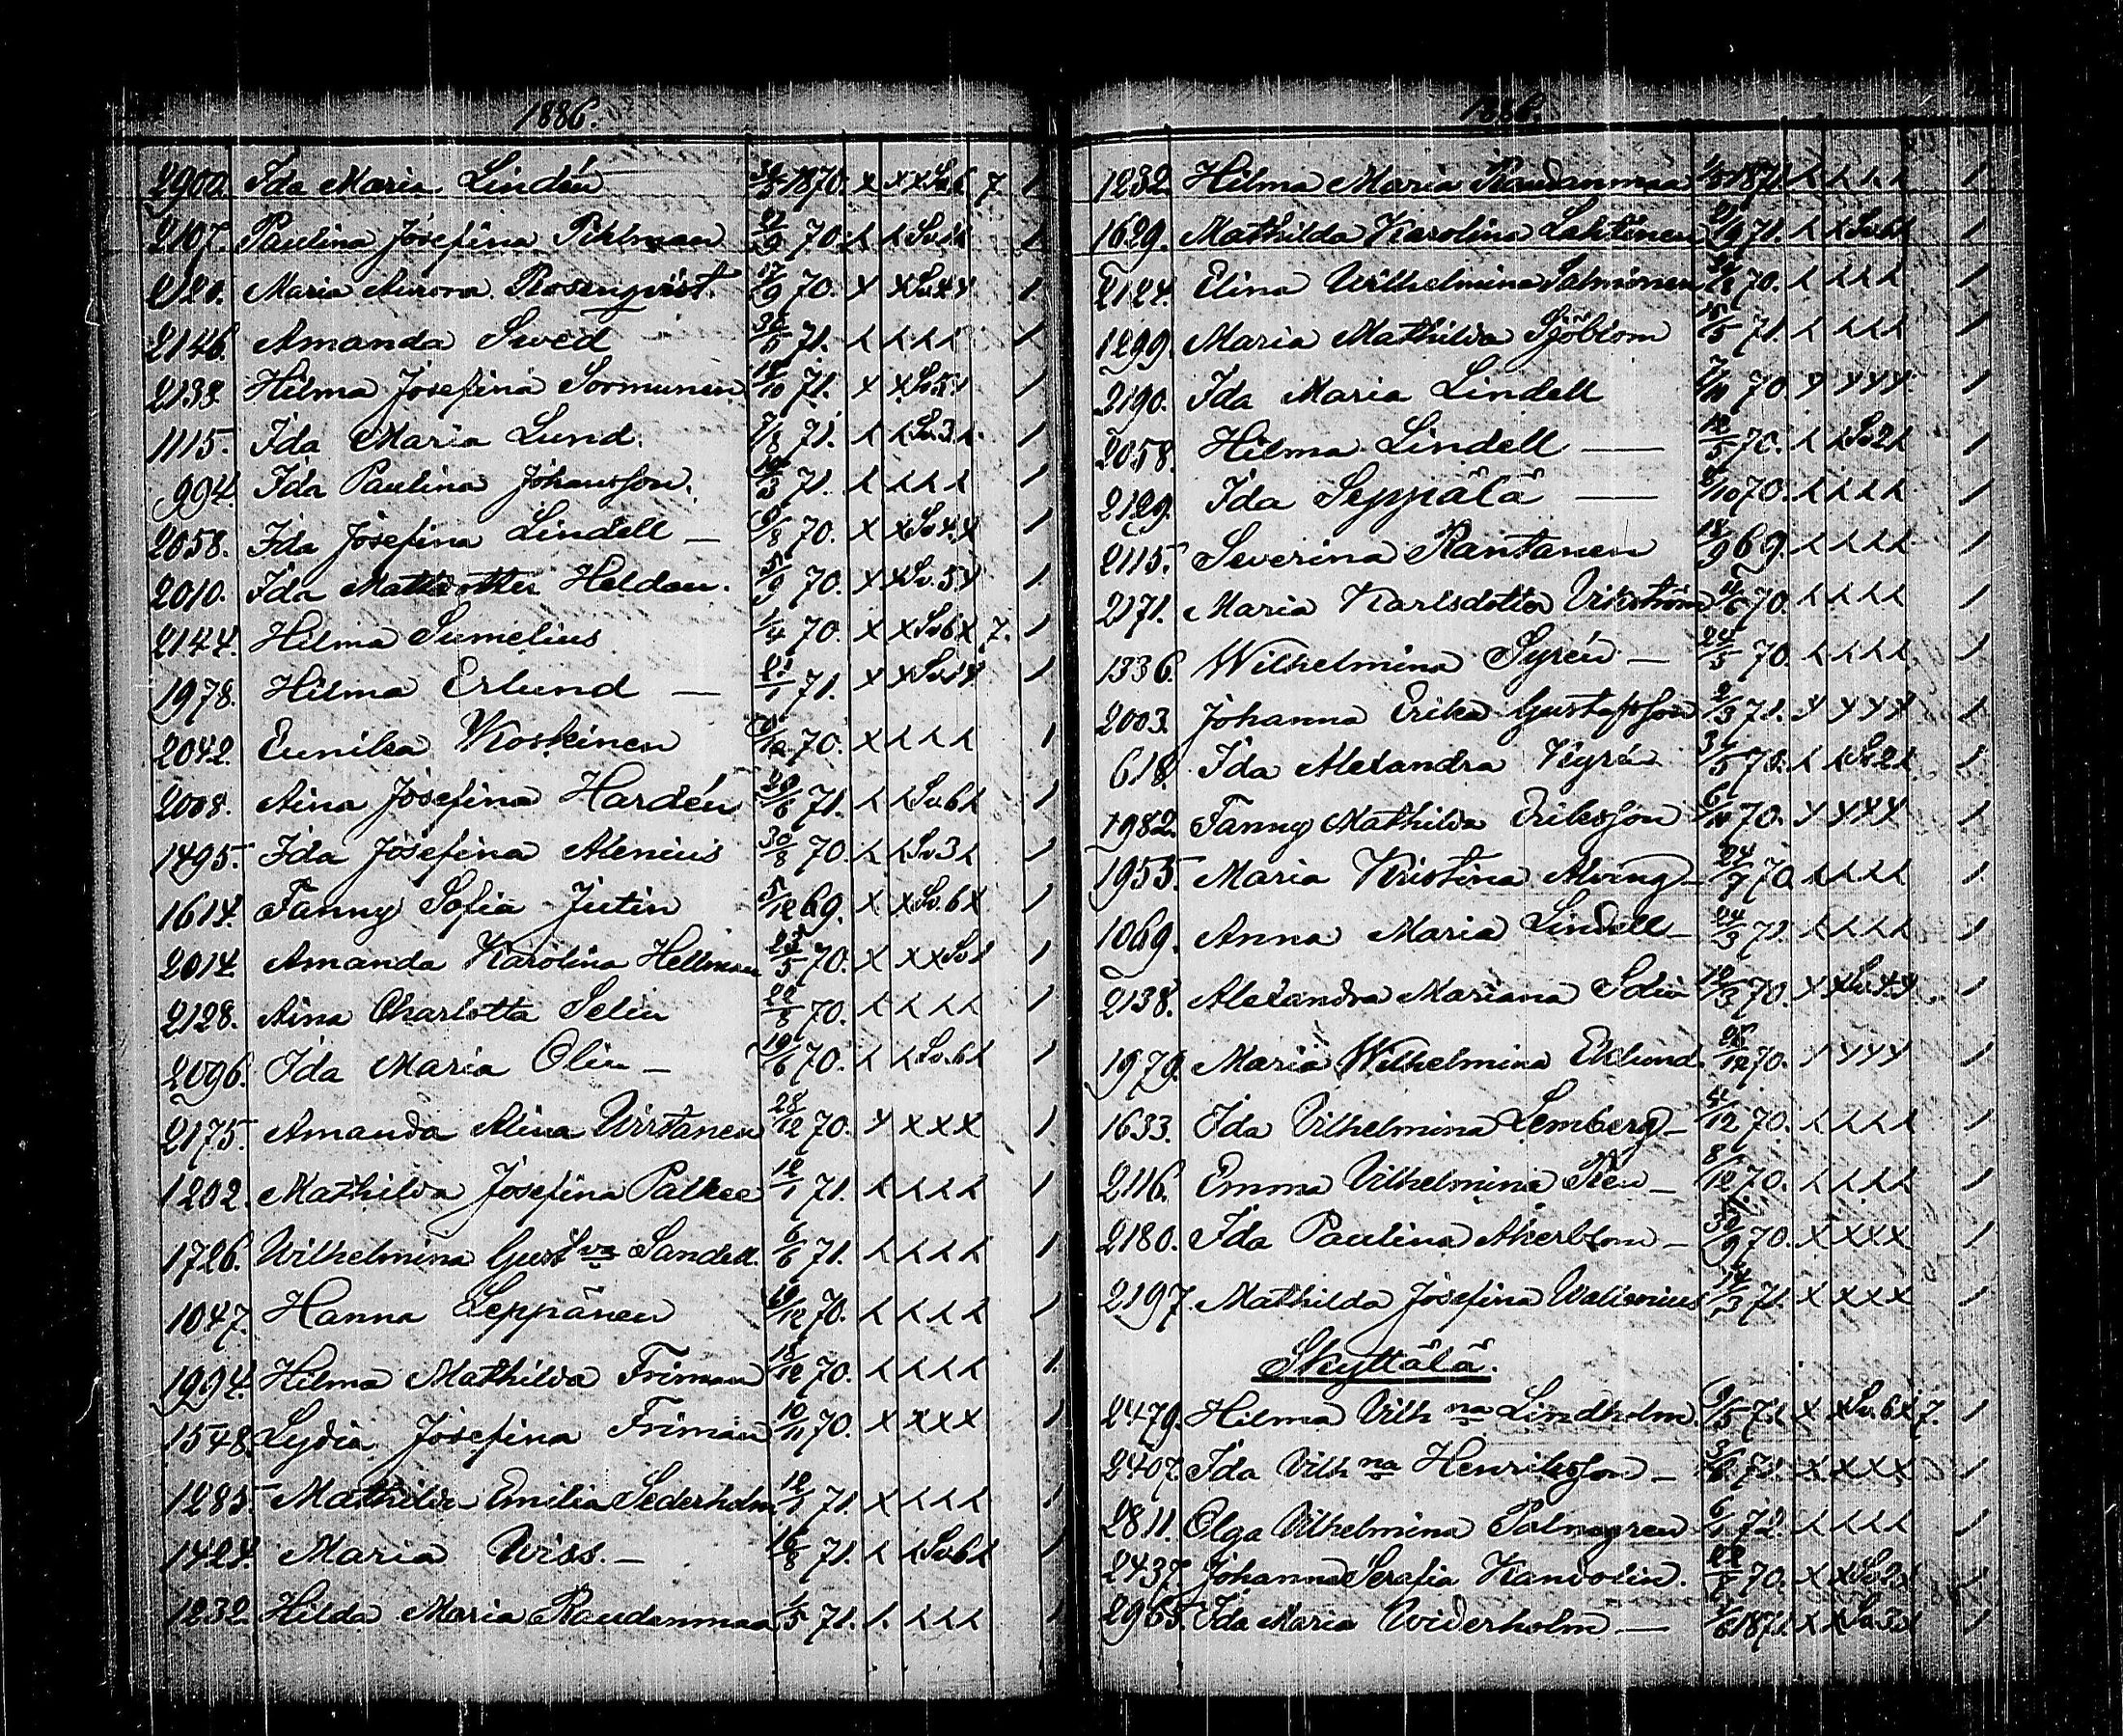 1886.
2900. Ida Maria Lindén 1870. x x x Sv.6 7. 1
2107. Paulina Josefina Pihlman 27/9 70. 1
2120. Maria Aurora Rosenqvist. 17/9 70. x x Sv.4 x 1
2146. Amanda Swed 71. 1
2138. Hilma Josefina Sormunen 71. x x Sv.5 1
1115. Ida Maria Lund. 7/8 71. Sv.3 1
994. Ida Paulina Johansson. 71. 1
2058. Ida Josefina Lindell — 70. x x Sv.4 x 1
2010. Ida Mattsdotter Heldan. 5/9 70. x x Sv.5 x 1
2144. Hilma Sumelius 1/4 70. x x Sv.6 x 7. 1
1978. Hilma Erlund — 21/1 71. x x Sv. 1
2042. Eunika Koskinen 70. x 1
2008. Aina Josefina Hardén 29/6 71. Sv.6 1
1495. Ida Josefina Alenius 30/8 70. Sv.3 1
1614. Fanny Sofia Jutin 5/12 69. x x Sv.6 x 1
2014. Amanda Karolina Hellman 23/5 70. x x x Sv. 1
2128. Aina Charlotta Selin 22/8 70. 1
2096. Ida Maria Olin — 19/6 70. Sv.6 1
2175. Amanda Alina Wirtanen 28/12 70. x x x x 1
1202. Mathilda Josefina Palkee 12/1 71. 1
1726. Wilhelmina Gust va Sandell. 6/6 71. 1
1047. Hanna Leppänen 19/12 70. 1
1994. Hilma Mathilda Friman 18/12 70. 1
1548. Lydia Josefina Friman 10/11 70. x x x x 1
1285. Mathilda Emilia Sederholm 12/1 71. x 1
1424. Maria Wiss. — 16/8 71. Sv.6 1
1232. Hilda Maria Raudanmaa 1/5 71. 1
1886.
1232. Hilma Maria Raudanmaa 1/5 1871. 1
1629. Mathilda Karolina Lahtinen 21/9 71. x Sv.6 1
2124. Elina Wilhelmina Salminen 70. 1
1299. Maria Mathilda Sjöblom 71. 1
2190. Ida Maria Lindell 7/10 70. x x x x 1
2058. Hilma Lindell — 12/5 70. Sv.2 1
2129. Ida Seppälä — /10 70. 1
2115. Severina Rantanen 18/9 69. 1
2171. Maria Karlsdotter Wikström 70. 1
1336. Wilhelmina Syrén — 24/5 70. 1
2003. Johanna Erika Gustafsson 2/3 71. x x x x 1
618. Ida Alexandra Kyrö Sv.2 1
1982. Fanny Mathilda Eriksson 70. x x x x 1
1955. Maria Kristina Alving — 24/7 70. 1
1069. Anna Maria Lindell — 24/3 71. 1
2138. Alexandra Mariana 12/3 70. x x Sv.4 x 1
1979. Maria Wilhelmina Eklund. 26/12 70. x x x x 1
1633. Ida Vilhelmina Lemberg — /12 70. 1
2116. Emma Vilhelmina Sten — 8/12 70. 1
2180. Ida Paulina Åkerblom — 30/9 70. x x x x 1
2197. Mathilda Josefina Walisonius 14/3 71. x x x x 1
Skyttälä.
2479. Hilma Vilh na Lindholm. 9/5 71. x x Sv.6 x 7. 1
2407. Ida Vilh na Henriksson — 71. x x x x 1
2811. Olga Vilhelmina Palmgren 72. 1
2437. Johanna Serafia Kandolin. 70. x x Sv.2 1
2965. Ida Maria Widerholm — 1871. x x Sv. 1